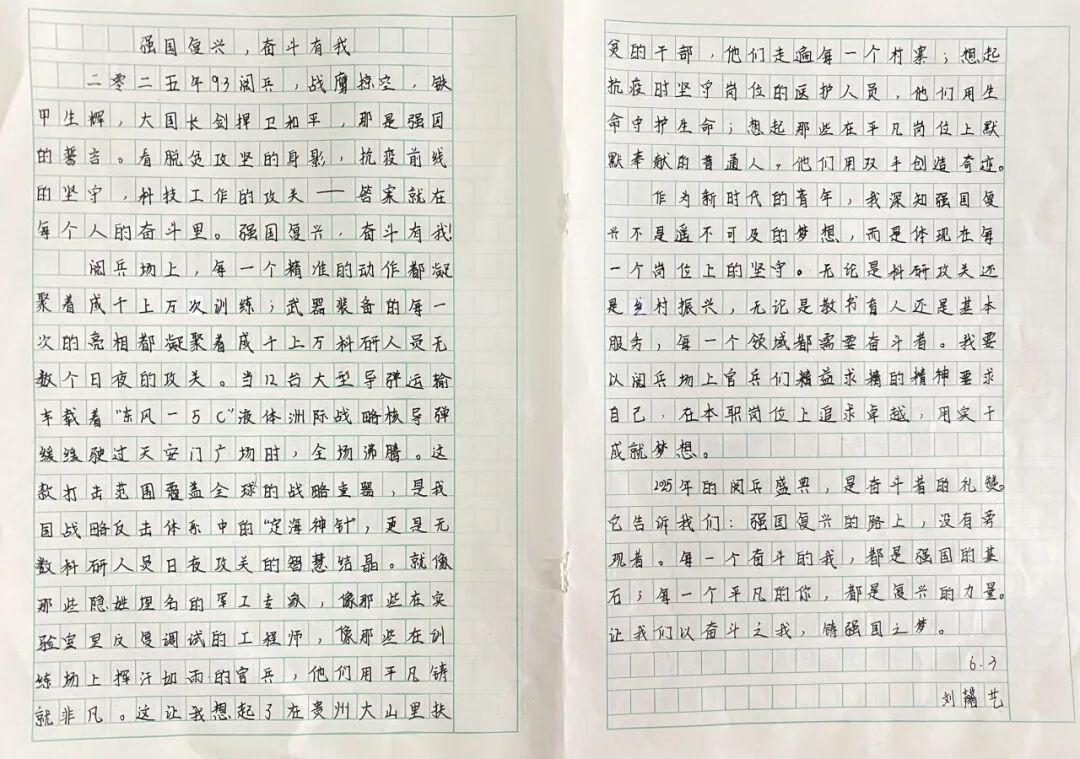 强国复兴，奋斗有我
二零二五年93阅兵，战鹰掠空，铁
甲生辉，大国长剑捍卫和平，那是强国
的誓言。看脱贫攻坚的身影，抗疫前线
的坚守，科技工作的攻关——答案就在
每个人的奋斗里。强国复兴，奋斗有我！
阅兵场上，每一个精准的动作都凝
聚着成千上万次训练；武器装备的每一
次的亮相都凝聚着成千上万科研人员无
数个日夜的攻关。当12台大型导弹运输
车载着“东风-5C”液体洲际战略核导弹
缓缓驶过天安门广场时，全场沸腾。这
款打击范围覆盖全球的战略重器，是我
国战略反击体系中的“定海神针”，更是无
数科研人员日夜攻关的智慧结晶。就像
那些隐姓埋名的军工专家，像那些在实
验室里反复调试的工程师，像那些在训
练场上挥汗如雨的官兵，他们用平凡铸
就非凡。这让我想起了在贵州大山里扶
贫的干部，他们走遍每一个村寨；想起
抗疫时坚守岗位的医护人员，他们用生
命守护生命；想起那些在平凡岗位上默
默奉献的普通人，他们用双手创造奇迹。
作为新时代的青年，我深知强国复
兴不是遥不可及的梦想，而是体现在每
一个岗位上的坚守。无论是科研攻关还
是乡村振兴，无论是教书育人还是基本
服务，每一个领域都需要奋斗者。我要
以阅兵场上官兵们精益求精的精神要求
自己，在本职岗位上追求卓越，用实干
成就梦想。
2025年的阅兵盛典，是奋斗者的礼赞。
它告诉我们：强国复兴的路上，没有旁
观者。每一个奋斗的我，都是强国的基
石；每一个平凡的你，都是复兴的力量。
让我们以奋斗之我，铸强国之梦。
6.3
刘馨艺